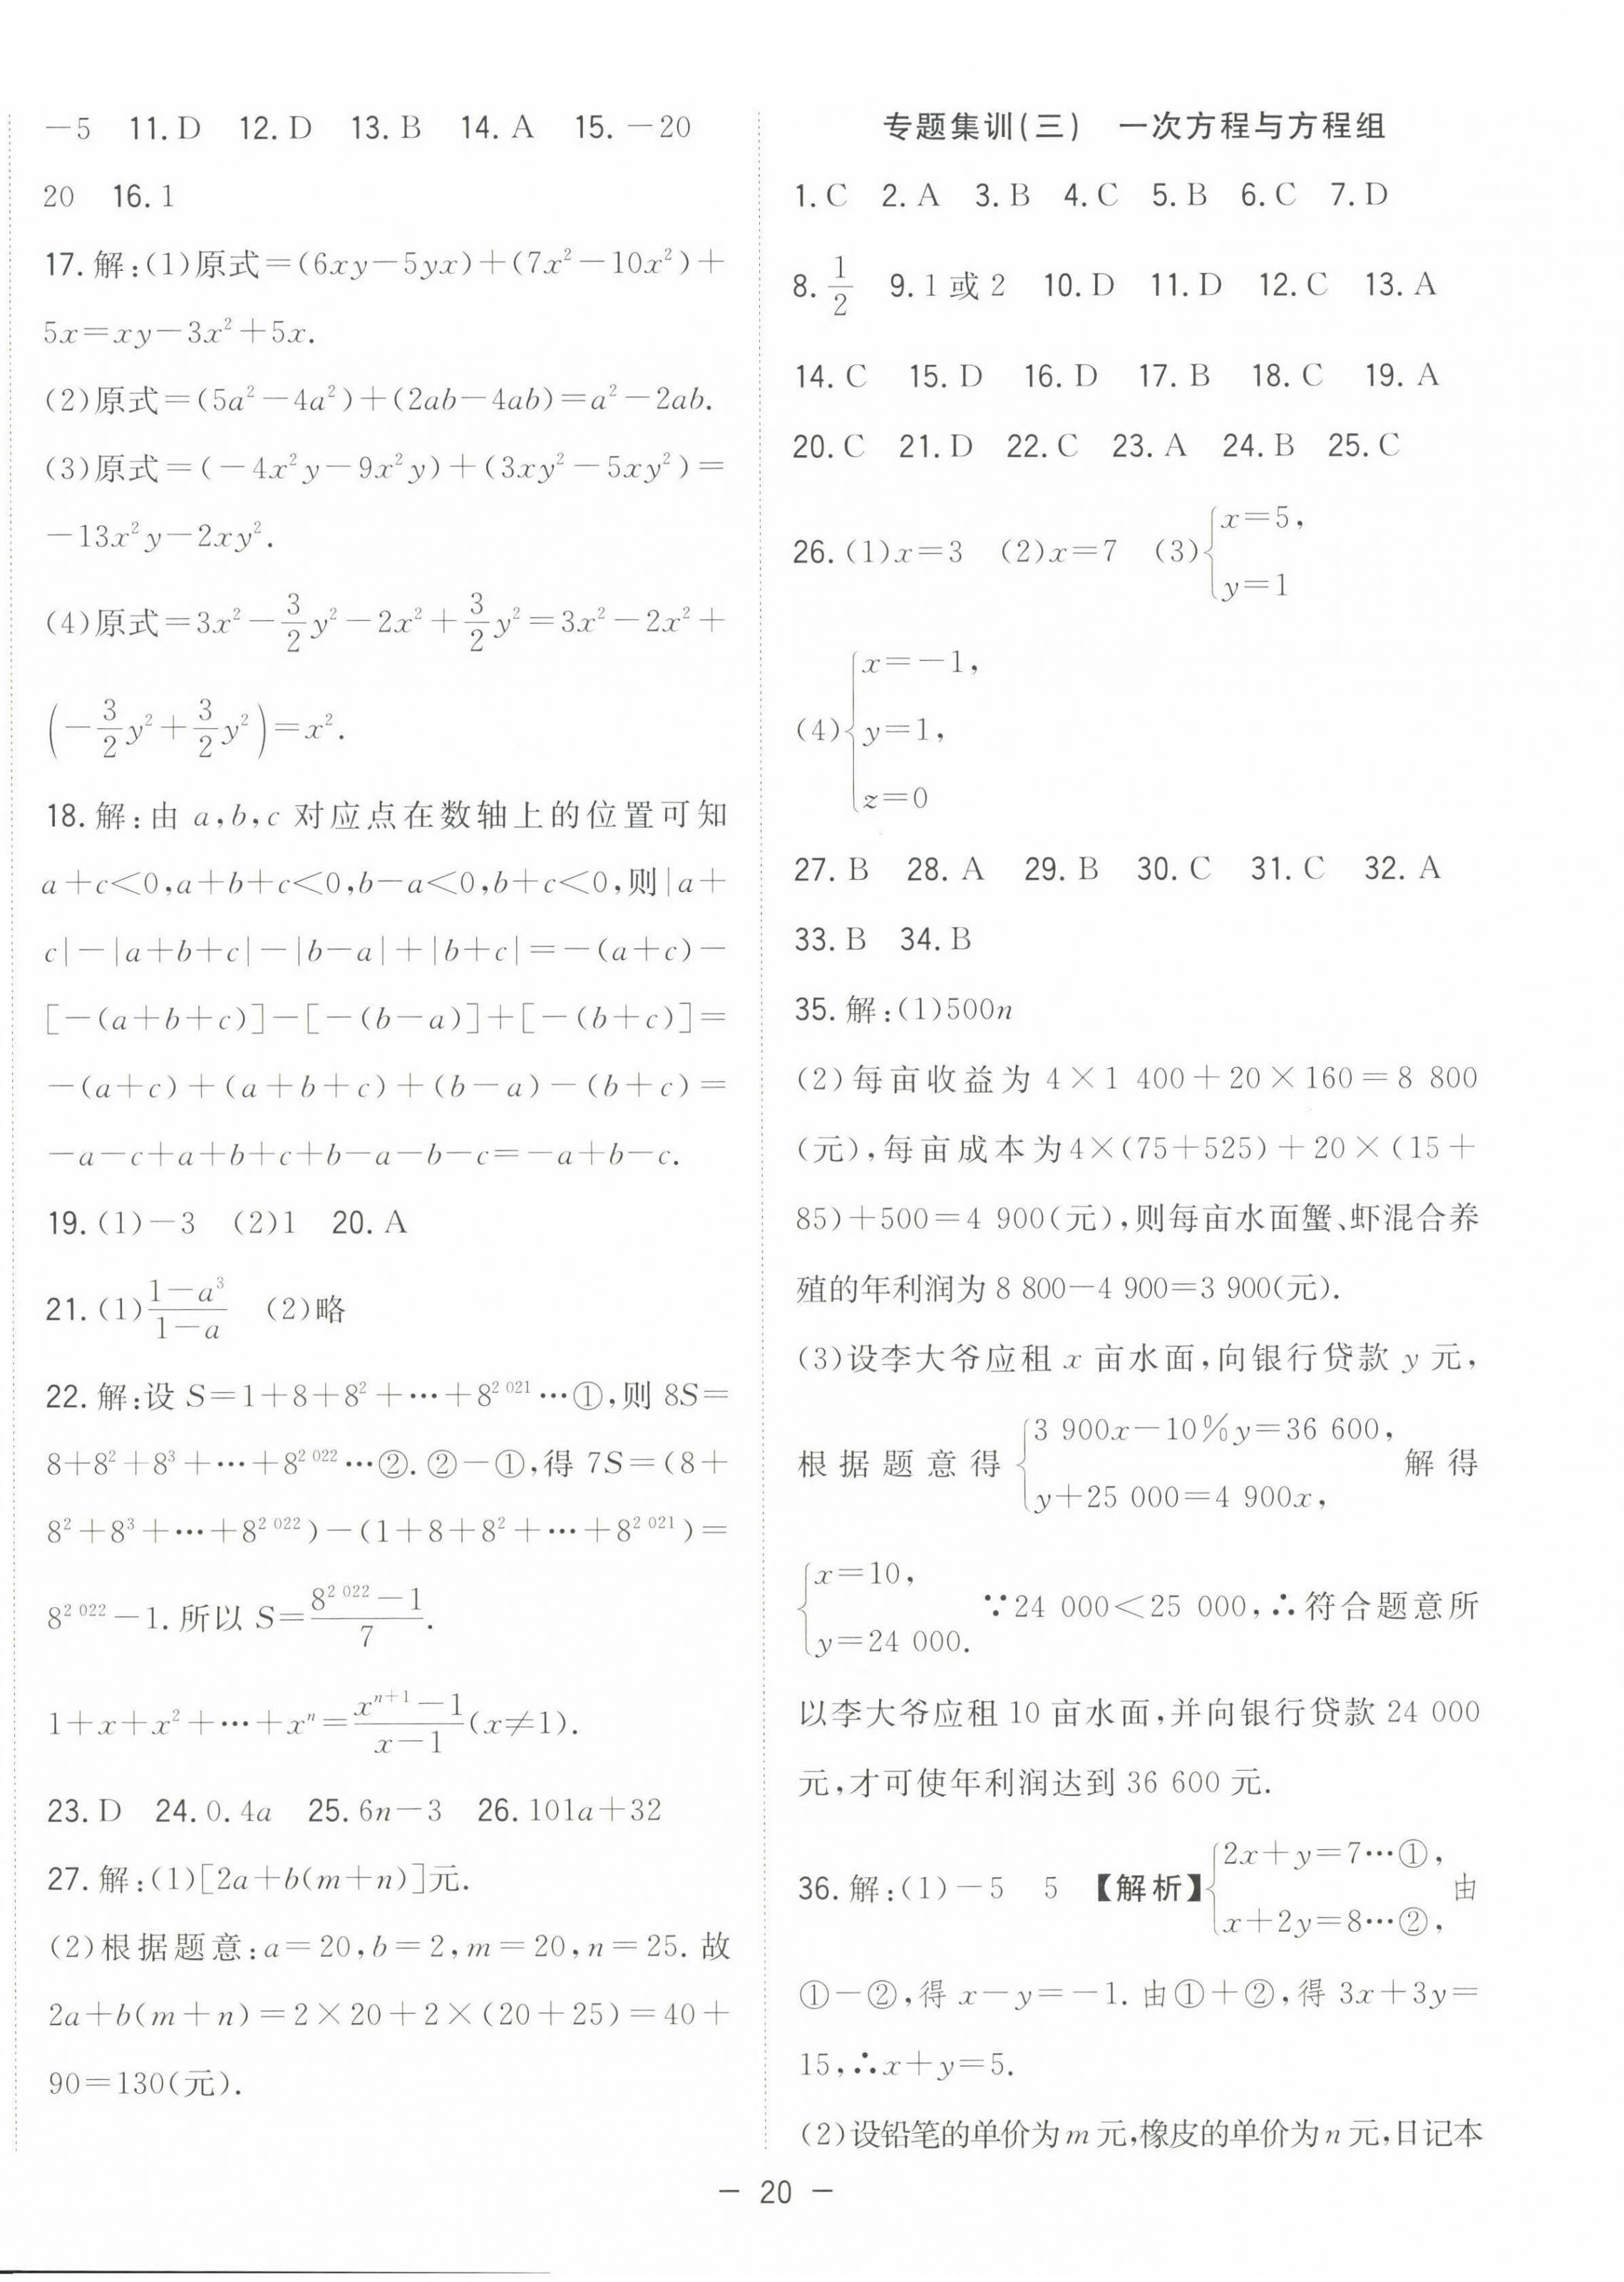 －5　11. D　12. D　13. B　14. A　15. －20
20　16. 1
17. 解:(1)原式＝(6xy－5yx)＋(7x²－10x²)＋
5x＝xy－3x²＋5x.
(2)原式＝(5a²－4a²)＋(2ab－4ab)＝a²－2ab.
(3)原式＝(－4x²y－9x²y)＋(3xy²－5xy²)＝
－13x²y－2xy².
(4)原式＝3x²－3/2 y²－2x²＋3/2 y²＝3x²－2x²＋
(－3/2 y²＋3/2 y²)＝x².
18. 解:由 a,b,c 对应点在数轴上的位置可知
a＋c＜0,a＋b＋c＜0,b－a＜0,b＋c＜0,则|a＋
c|－|a＋b＋c|－|b－a|＋|b＋c|＝－(a＋c)－
[－(a＋b＋c)]－[－(b－a)]＋[－(b＋c)]＝
－(a＋c)＋(a＋b＋c)＋(b－a)－(b＋c)＝
－a－c＋a＋b＋c＋b－a－b－c＝－a＋b－c.
19. (1)－3　(2)1　20. A
21. (1)(1－a³)/(1－a)　(2)略
22. 解:设 S＝1＋8＋8²＋…＋8^{2 021}…①,则 8S＝
8＋8²＋8³＋…＋8^{2 022}…②. ②－①,得 7S＝(8＋
8²＋8³＋…＋8^{2 022})－(1＋8＋8²＋…＋8^{2 021})＝
8^{2 022}－1. 所以 S＝(8^{2 022}－1)/7.
1＋x＋x²＋…＋xⁿ＝(x^{n＋1}－1)/(x－1)(x≠1).
23. D　24. 0. 4a　25. 6n－3　26. 101a＋32
27. 解:(1)[2a＋b(m＋n)]元.
(2)根据题意:a＝20,b＝2,m＝20,n＝25. 故
2a＋b(m＋n)＝2×20＋2×(20＋25)＝40＋
90＝130(元).
专题集训(三)　一次方程与方程组
1. C　2. A　3. B　4. C　5. B　6. C　7. D
8. 1/2　9. 1 或 2　10. D　11. D　12. C　13. A
14. C　15. D　16. D　17. B　18. C　19. A
20. C　21. D　22. C　23. A　24. B　25. C
26. (1)x＝3　(2)x＝7　(3){x＝5, y＝1
(4){x＝－1, y＝1, z＝0
27. B　28. A　29. B　30. C　31. C　32. A
33. B　34. B
35. 解:(1)500n
(2)每亩收益为 4×1 400＋20×160＝8 800
(元),每亩成本为4×(75＋525)＋20×(15＋
85)＋500＝4 900(元),则每亩水面蟹、虾混合养
殖的年利润为 8 800－4 900＝3 900(元).
(3)设李大爷应租 x 亩水面,向银行贷款 y 元,
根据题意得 {3 900x－10%y＝36 600, y＋25 000＝4 900x, 解得
{x＝10, y＝24 000. ∵24 000＜25 000,∴符合题意所
以李大爷应租 10 亩水面,并向银行贷款 24 000
元,才可使年利润达到 36 600 元.
36. 解:(1)－5　5　【解析】{2x＋y＝7…①, x＋2y＝8…②, 由
①－②,得 x－y＝－1. 由①＋②,得 3x＋3y＝
15,∴x＋y＝5.
(2)设铅笔的单价为m元,橡皮的单价为n元,日记本
－ 20 －